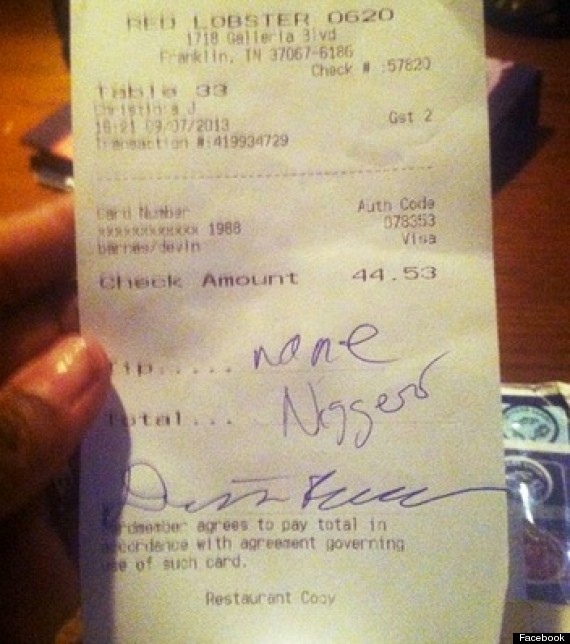 RED LOBSTER 0620
1718 Galleria Blvd
Franklin, TN 37067-6186
Check # :57820
Table 33
Christina J
18:21 09/07/2013
Gst 2
Transaction #:419934729
Card Number
Auth Code
xxxxxxxxxxxx 1988
078353
barnes/devin
Visa
Check Amount 44.53
Tip..... none
Total... Nigger
Cardmember agrees to pay total in
accordance with agreement governing
use of such card.
Restaurant Copy
Facebook